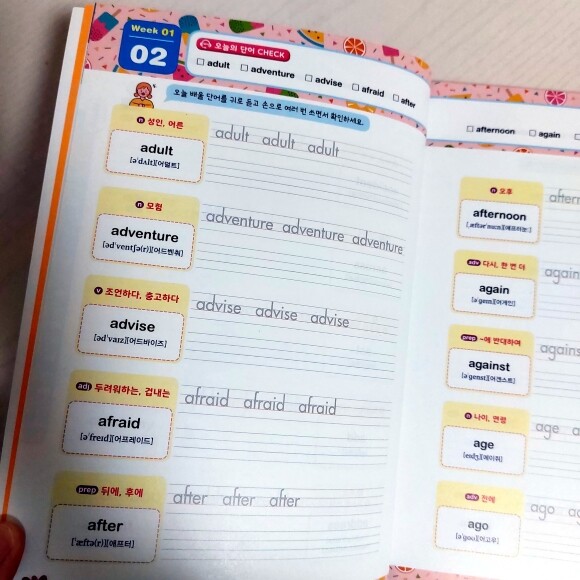 Week 01
02
오늘의 단어 CHECK
adult adventure advise afraid after
오늘 배울 단어를 귀로 듣고 손으로 여러 번 쓰면서 확인하세요.
n 성인, 어른
adult
[əˈdʌlt][어덜트]
adult adult adult
n 모험
adventure
[ədˈventʃə(r)][어드벤춰]
adventure adventure adventure
v 조언하다, 충고하다
advise
[ədˈvaɪz][어드바이즈]
advise advise advise
adj 두려워하는, 겁내는
afraid
[əˈfreɪd][어프레이드]
afraid afraid afraid
prep 뒤에, 후에
after
[ˈæftə(r)][애프터]
after after after
afternoon again
n 오후
afternoon
[ˌæftərˈnuːn][애프터눈:]
adv 다시, 한 번 더
again
[əˈgen][어게인]
again
prep ~에 반대하여
against
[əˈgenst][어겐스트]
against
n 나이, 연령
age
[eɪdʒ][에이쥐]
age
adv 전에
ago
[əˈgoʊ][어고우]
ago ago